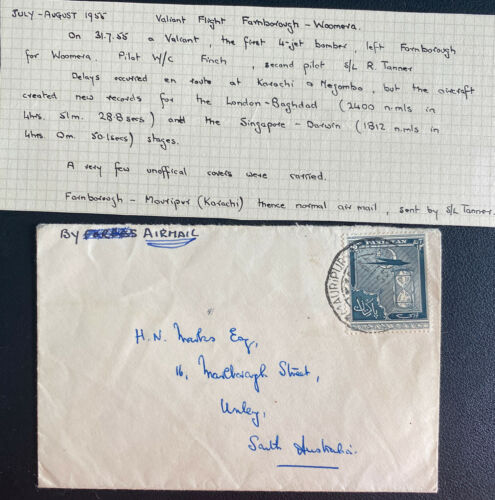 JULY - AUGUST 1955 Valiant Flight Farnborough - Woomera.
On 31.7.55 a Valiant, the first 4-jet bomber, left Farnborough
for Woomera. Pilot W/C Finch, second pilot S/L R. Tanner
Delays occurred en route at Karachi & Negombo, but the aircraft
created new records for the London - Baghdad (2400 n.mls in
4hrs. 51m. 28.8 secs) and the Singapore - Darwin (1812 n.mls in
4hrs. 0m. 50.1secs) stages.
A very few unoffical covers were carried.
Farnborough - Mauripur (Karachi) thence normal air mail, sent by S/L Tanner.
BY AIRMAIL
MAURIPUR
PAKISTAN
H.N. Marks Esq,
16, Marlborough Street,
Unley,
South Australia.